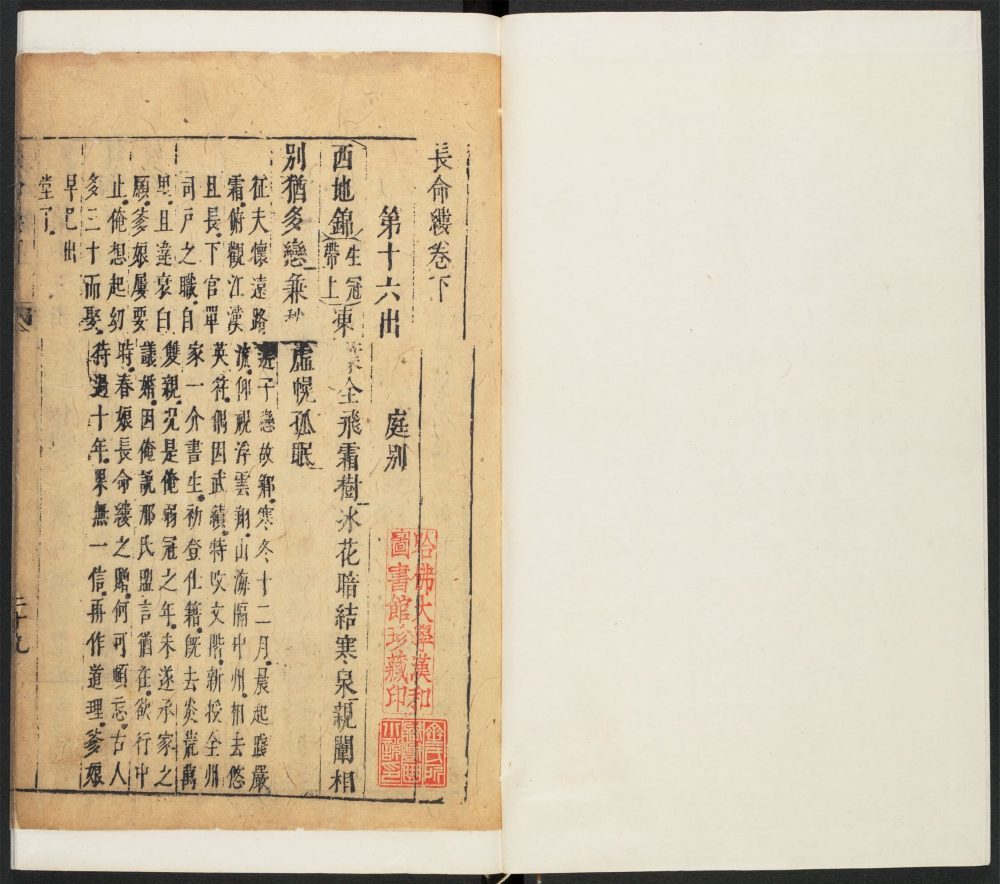 長命縷卷下
第十六出 庭別
西地錦生冠帶上東 全飛霜樹冰花暗結寒泉親闈相
別猶多戀兼 虛幌孤眠
征夫懷遠路遊子戀故鄉寒冬十二月晨起踐嚴
霜俯觀江漢流仰視浮雲翔山海隔中州相去悠
且長下官單英符偶因武績特改文階新授全州
司戶之職自家一介書生初登仕籍旣去炎荒萬
里且違衰白雙親况是俺弱冠之年未遂承家之
願爹娘屢要議婚因俺說邢氏盟言猶在欲行中
止俺想起幼時春娘長命縷之贈何可頓忘古人
多三十而娶待過十年果無一信再作道理爹娘
早已出
堂了
二十九
哈佛大學漢和
圖書館珍藏印